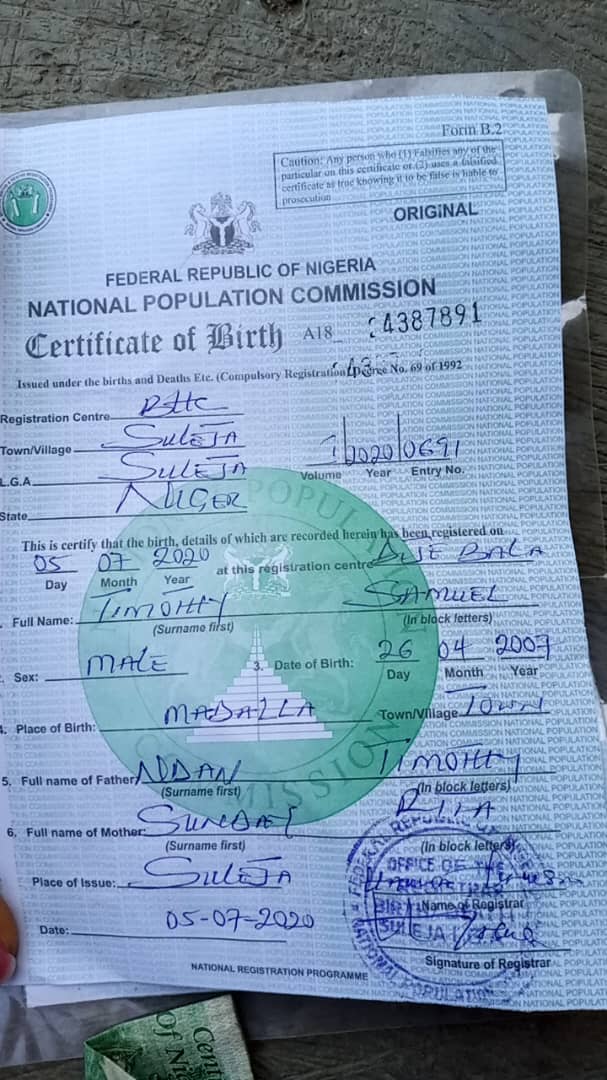 Form B.2
Caution: Any person who (1) Falsifies any of the
particular on this certificate or (2) uses a falsified
certificate as true knowing it to be false is liable to
prosecution
ORIGINAL
FEDERAL REPUBLIC OF NIGERIA
NATIONAL POPULATION COMMISSION
Certificate of Birth A18 24387891
Issued under the births and Deaths Etc. (Compulsory Registration) No. 69 of 1992
Registration Centre
Town/Village SULEJA
L.G.A SULEJA
1 2020 0691
Volume Year Entry No.
State NIGER
This is certify that the birth, details of which are recorded herein has been registered on
05 07 2020 at this registration centre BALA
Day Month Year
Full Name: TIMOTHY SAMUEL
(Surname first) (In block letters)
Sex: MALE 3. Date of Birth: 26 04 2007
Day Month Year
4. Place of Birth: MADALLA Town/Village TOWN
5. Full name of Father NDAN TIMOTHY
(Surname first) (In block letters)
6. Full name of Mother: SUNDAY
(Surname first) (In block letters)
Place of Issue: SULEJA
OFFICE OF THE
Name of Registrar
SULEJA
Date: 05-07-2020
Signature of Registrar
NATIONAL REGISTRATION PROGRAMME